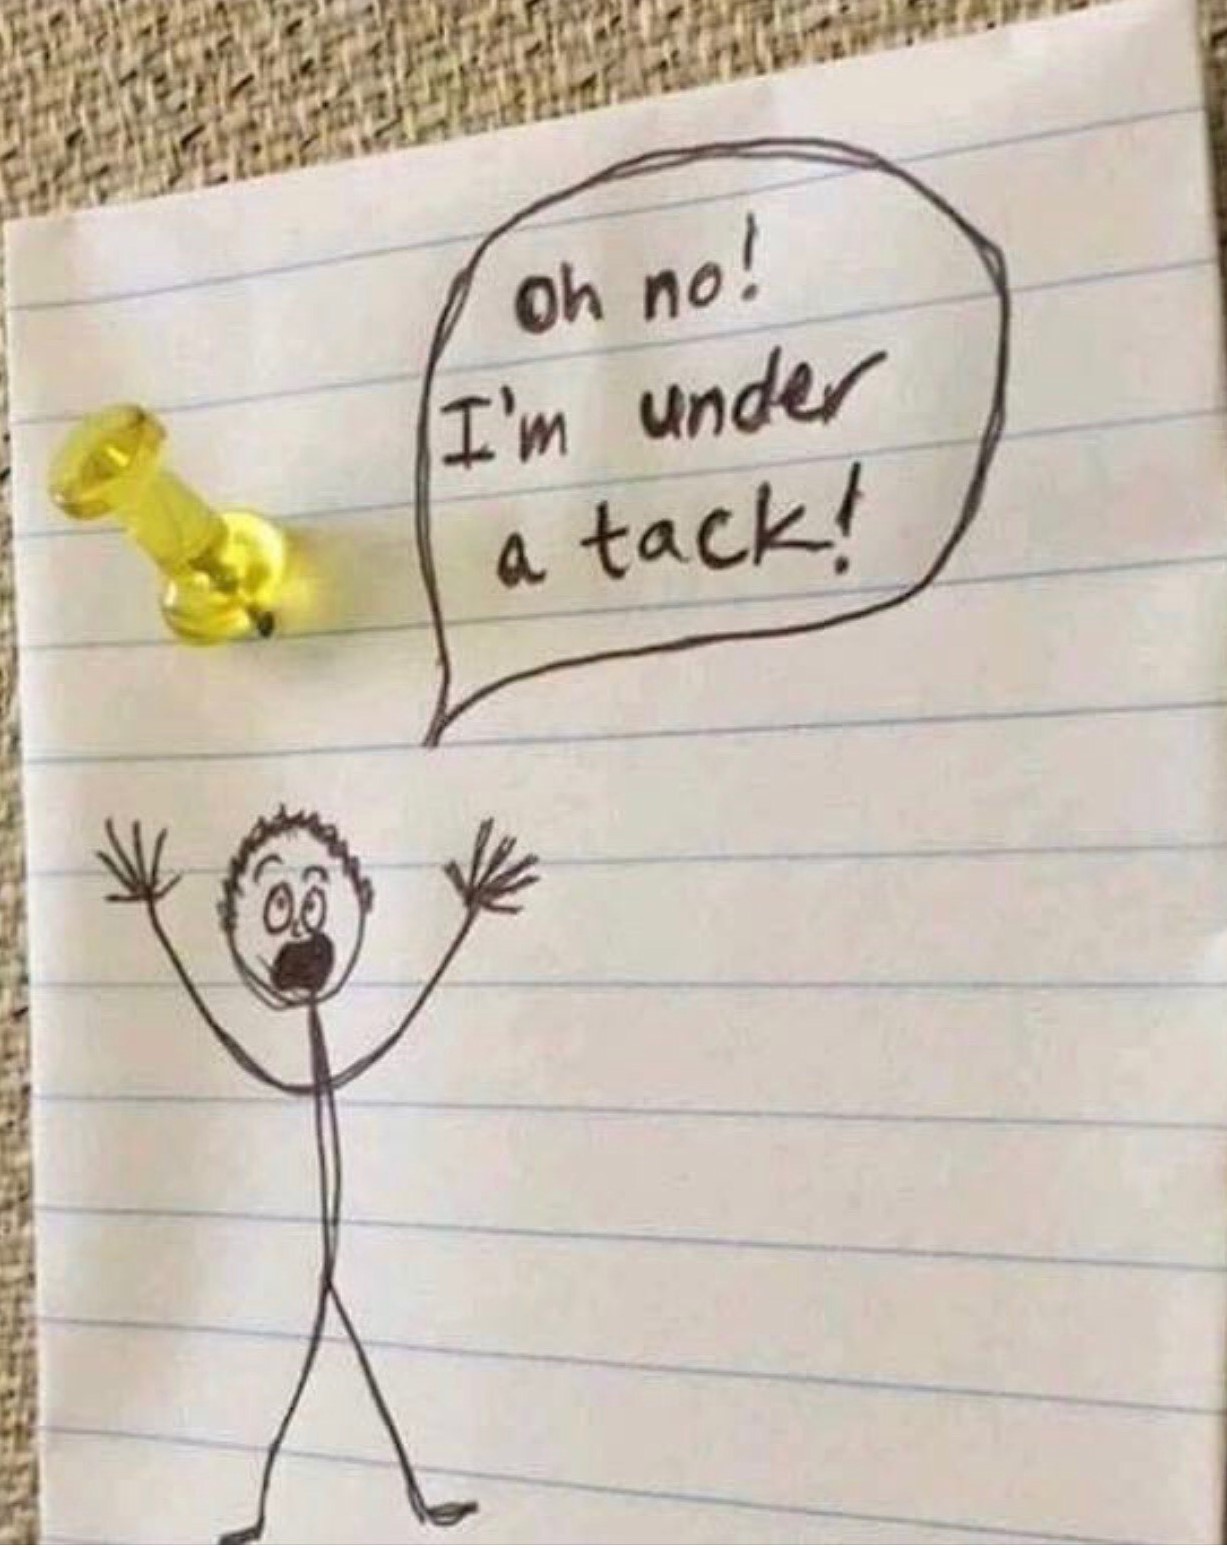 oh no!
I'm under
a tack!